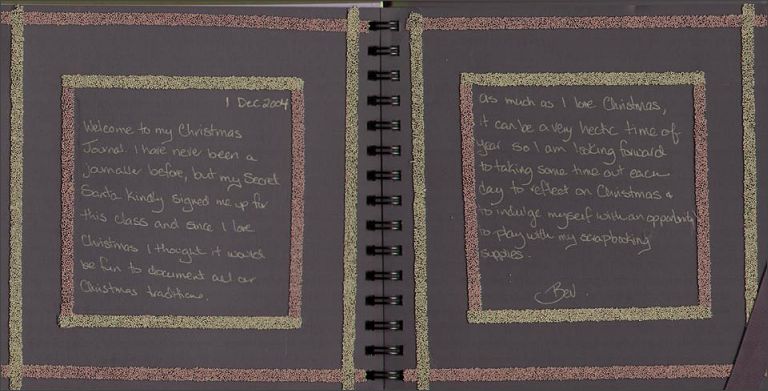 1 Dec 2004
Welcome to my Christmas
Journal. I have never been a
journaller before, but my Secret
Santa kindly signed me up for
this class and since I love
Christmas I thought it would
be fun to document all our
Christmas traditions.
as much as I love Christmas,
it can be a very hectic time of
year so I am looking forward
to taking some time out each
day to reflect on Christmas &
to indulge myself with an opportunity
to play with my scrapbooking
supplies.
Bev